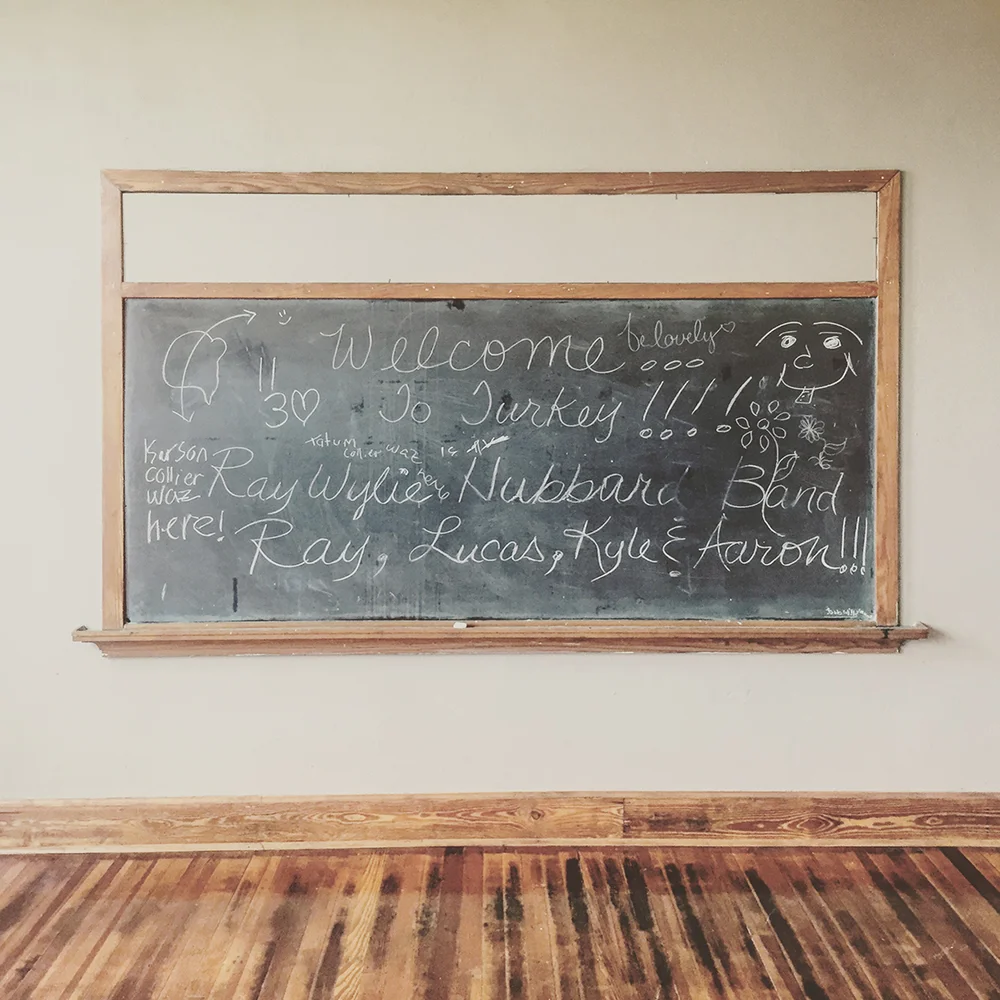 Welcome ...
be lovely
To Turkey !!!!
30
Kerson
Collier
waz
here!
Tatum
Collier waz
here
Ray Wylie Hubbard Band
Ray, Lucas, Kyle & Aaron!!!